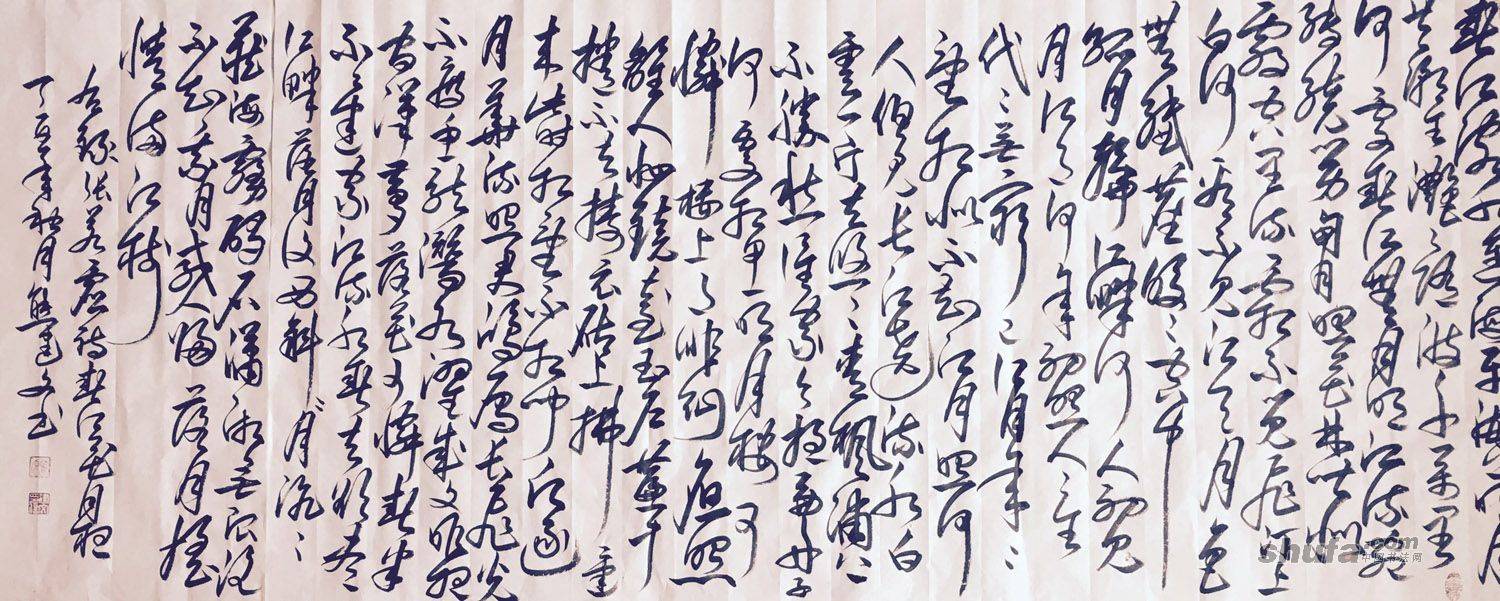 春江潮水连海平海上明月
共潮生滟滟随波千万里
何处春江无月明江流宛
转绕芳甸月照花林皆似
霰空里流霜不觉飞汀上
白沙看不见江天一色
无纤尘皎皎空中
孤月轮江畔何人初见
月江月何年初照人人生
代代无穷已江月年年
望相似不知江月照何
人但见长江送流水白
云一片去悠悠青枫浦上
不胜愁谁家今夜扁舟子
何处相思明月楼可
怜楼上月徘徊应照
离人妆镜台玉户帘中
卷不去捣衣砧上拂还
来此时相望不相闻愿逐
月华流照君鸿雁长飞光
不度鱼龙潜跃水成文昨夜
闲潭梦落花可怜春半
不还家江流水春去欲尽
江畔落月复西斜斜月沉沉
藏海雾碣石潇湘无限路
不知乘月几人归落月摇
情满江树
右录张若虚诗春江花月夜
丁酉年秋月熊建文书
shufa.com
中国书法网